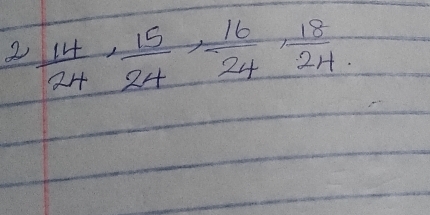 2 14/24 , 15/24 , 16/24 , 18/24 .